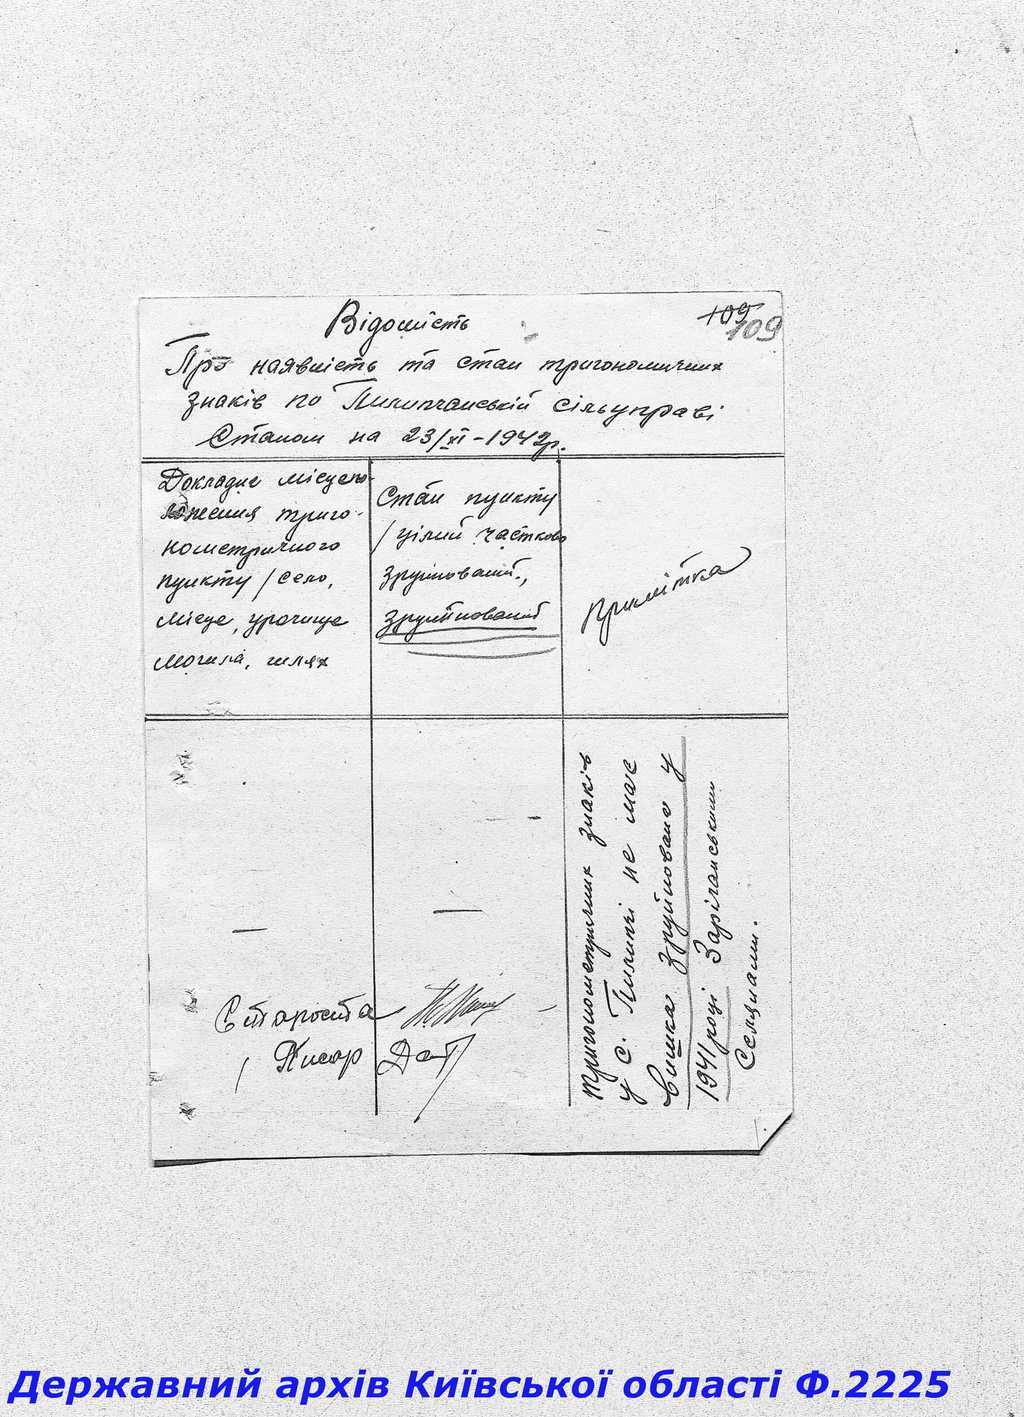 Відомість
109
109
Про наявність та стан тригономичних
знаків по Пилипчанській сільуправі
Станом на 23/XI-1942р.
Докладне місцепо-
ложення триго-
нометричного
пункту /село,
місце, урочище
могила, шлях
Стан пункту
/цілий частково
зруйнований.,
зруйнований
Примітка
тригонометричних знаків
у с. Пилипчі не має
вишка зруйновано у
1941 році Зарічанськими
Селянами.
Староста
Писар
Державний архів Київської області Ф.2225